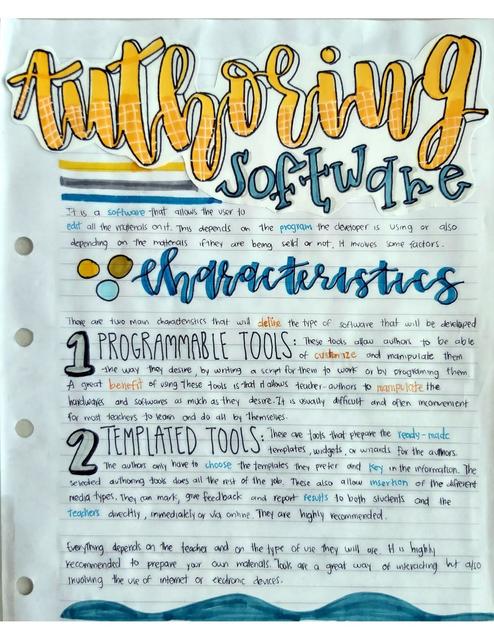 Authoring
Software
It is a software that allows the user to
edit all the materials on it. This depends on the program the developer is using or also
depending on the materials if they are being sold or not. It involves some factors.
Characteristics
There are two main characteristics that will define the type of software that will be developed
1 PROGRAMMABLE TOOLS: These tools allow authors to be able
of customize and manipulate them
the way they desire, by writing a script for them to work or by programming them.
A great benefit of using these tools is that it allows teacher-authors to manipulate the
hardwares and softwares as much as they desire. It is usually difficult and often inconvenient
for most teachers to learn and do all by themselves.
2 TEMPLATED TOOLS: These are tools that prepare the ready-made
templates, widgets, or wizards for the authors.
The authors only have to choose the templates they prefer and key in the information. The
selected authoring tools does all the rest of the job. These also allow insertion of the different
media types. They can mark, give feedback and report results to both students and the
teachers directly, immediately or via online. They are highly recommended.
Everything depends on the teacher and on the type of use they will are. It is highly
recommended to prepare your own materials. Tools are a great way of interacting but also
involving the use of internet or electronic devices.